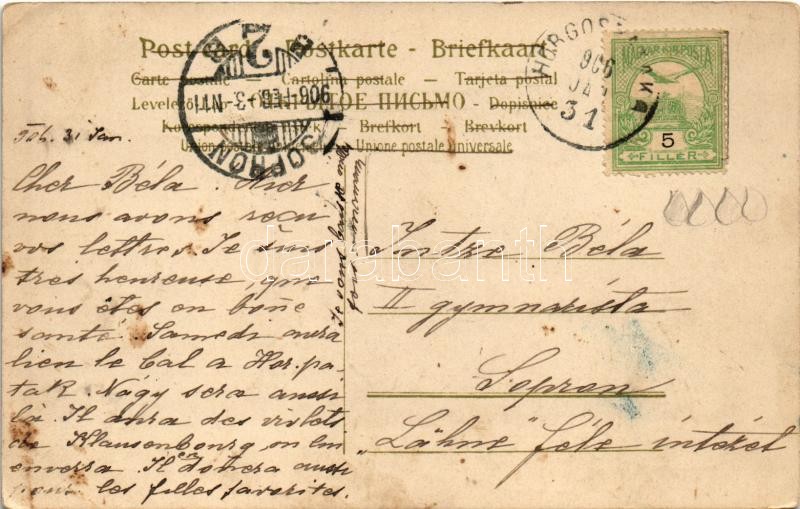 Postcard - Postkarte - Briefkaart
Carte postale – Cartolina postale – Tarjeta postal
Levelező ОТКРЫТОЕ ПИСЬМО – Dopisnice
Brefkort – Brevkort
Union postale universelle Unione postale universale
SOPRON
906 FEB. 3 N11
2
HARGOS
906
JAN
31
MAGYAR KIR. POSTA
5
FILLÉR
906. 31 Jan.
Cher Béla. Hier
nous avons reçu
vos lettres. Je suis
tres heureuse, que
vous êtes en boñe
santé. Samedi aura
lien le bal a Hor.pa-
tak. Nágy sera aussi
là. Il aura des violets
de Klausenbourg, on lui
enverra. Il en donera aussi
pour les filles favorites.
Je vous baise mille
fous
Intze Béla
II gymnazista
Sopron
„Lähne" féle intézet
darabanth